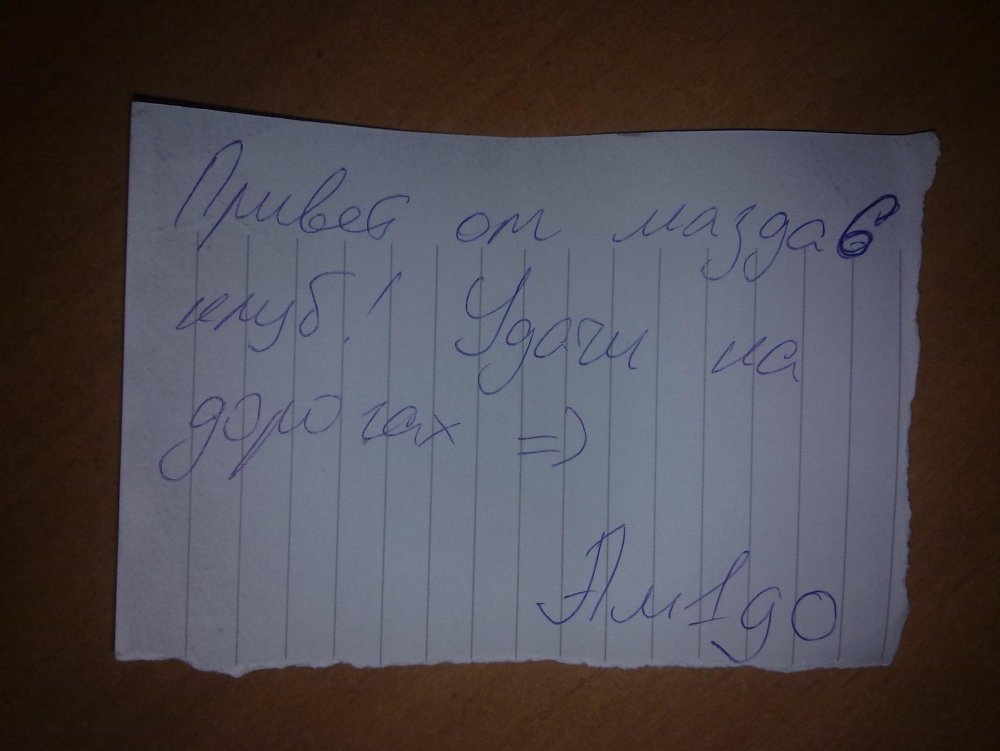 Привет от мазда6
клуб! Удачи на
дорогах =)